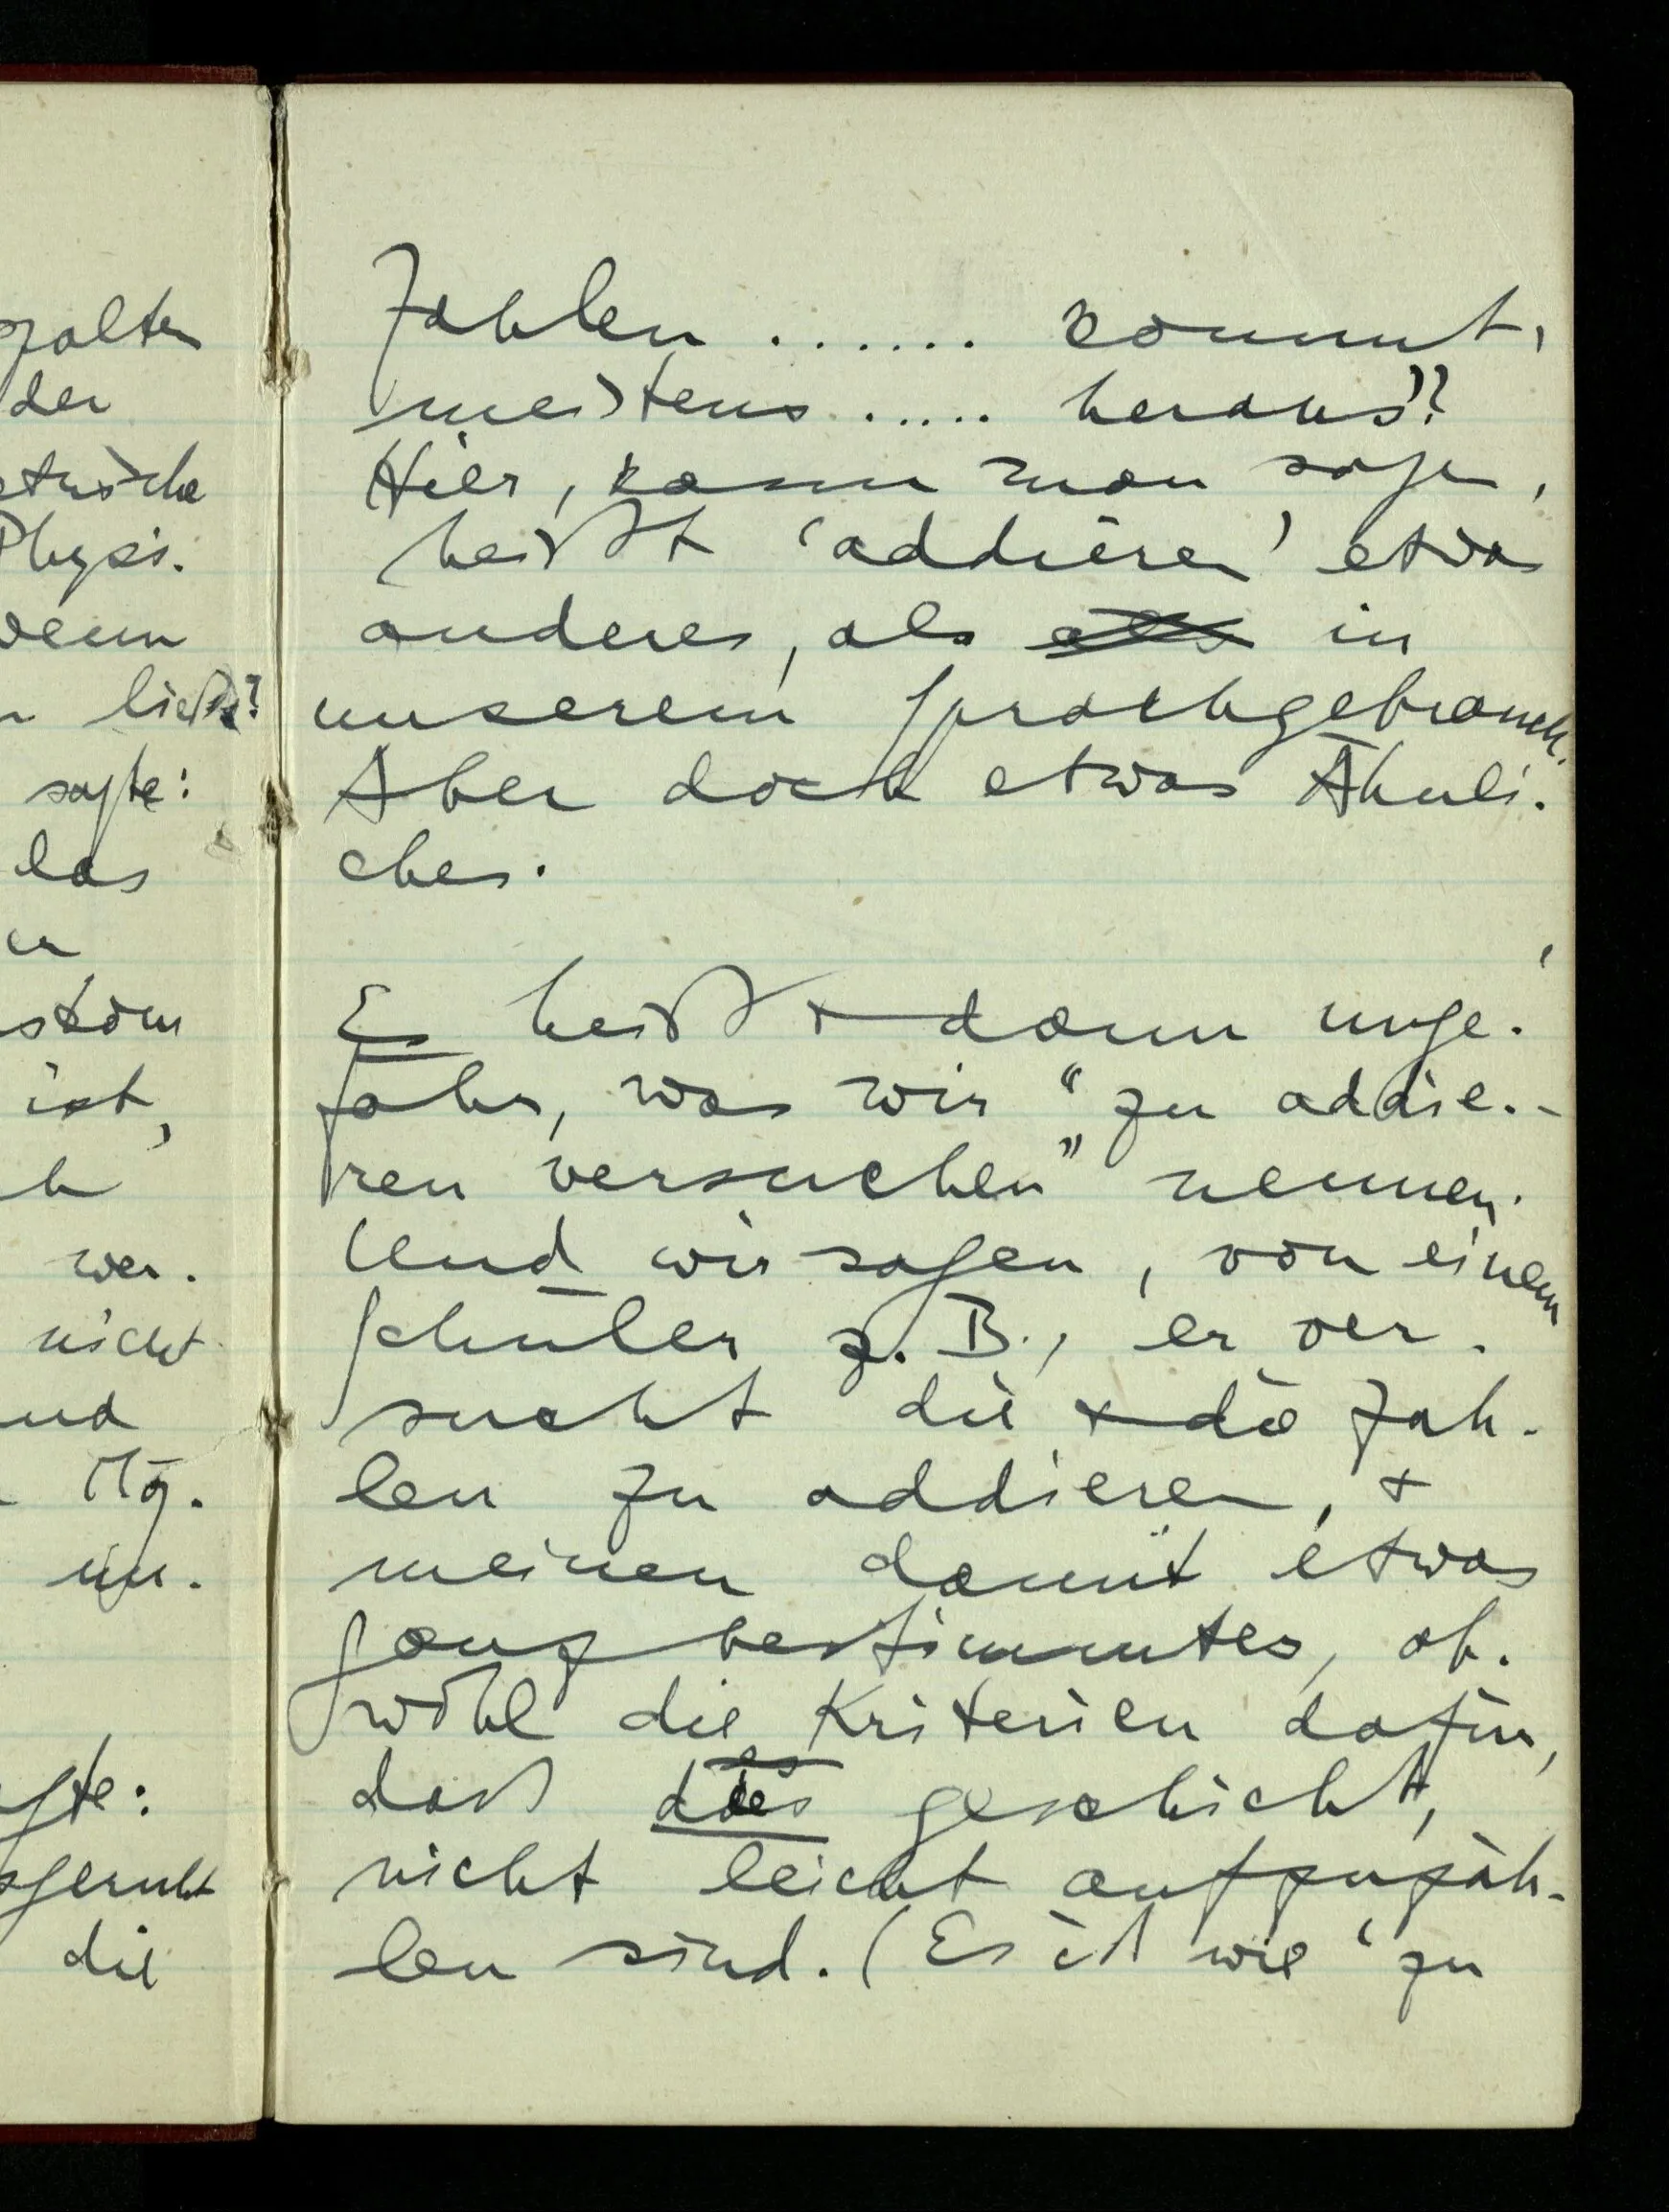 galten
der
Physi-
wenn
ließe?
sagte:
las
ist,
wer-
nicht
und
Mög-
un-
die
Zahlen ....... kommt,
meistens ..... heraus"?
Hier, kann man sagen,
heißt 'addieren' etwas
anderes, als als in
unserem Sprachgebrauch.
Aber doch etwas Ähnli-
ches.
Es heißt dann unge-
fähr, was wir "zu addie-
ren versuchen" nennen.
Und wir sagen, von einem
Schüler z.B., er ver-
sucht die & die Zah-
len zu addieren, &
meinen damit etwas
ganz bestimmtes, ob-
wohl die Kriterien dafür,
daß das geschieht,
nicht leicht aufzuzäh-
len sind. (Es ist wie 'zu